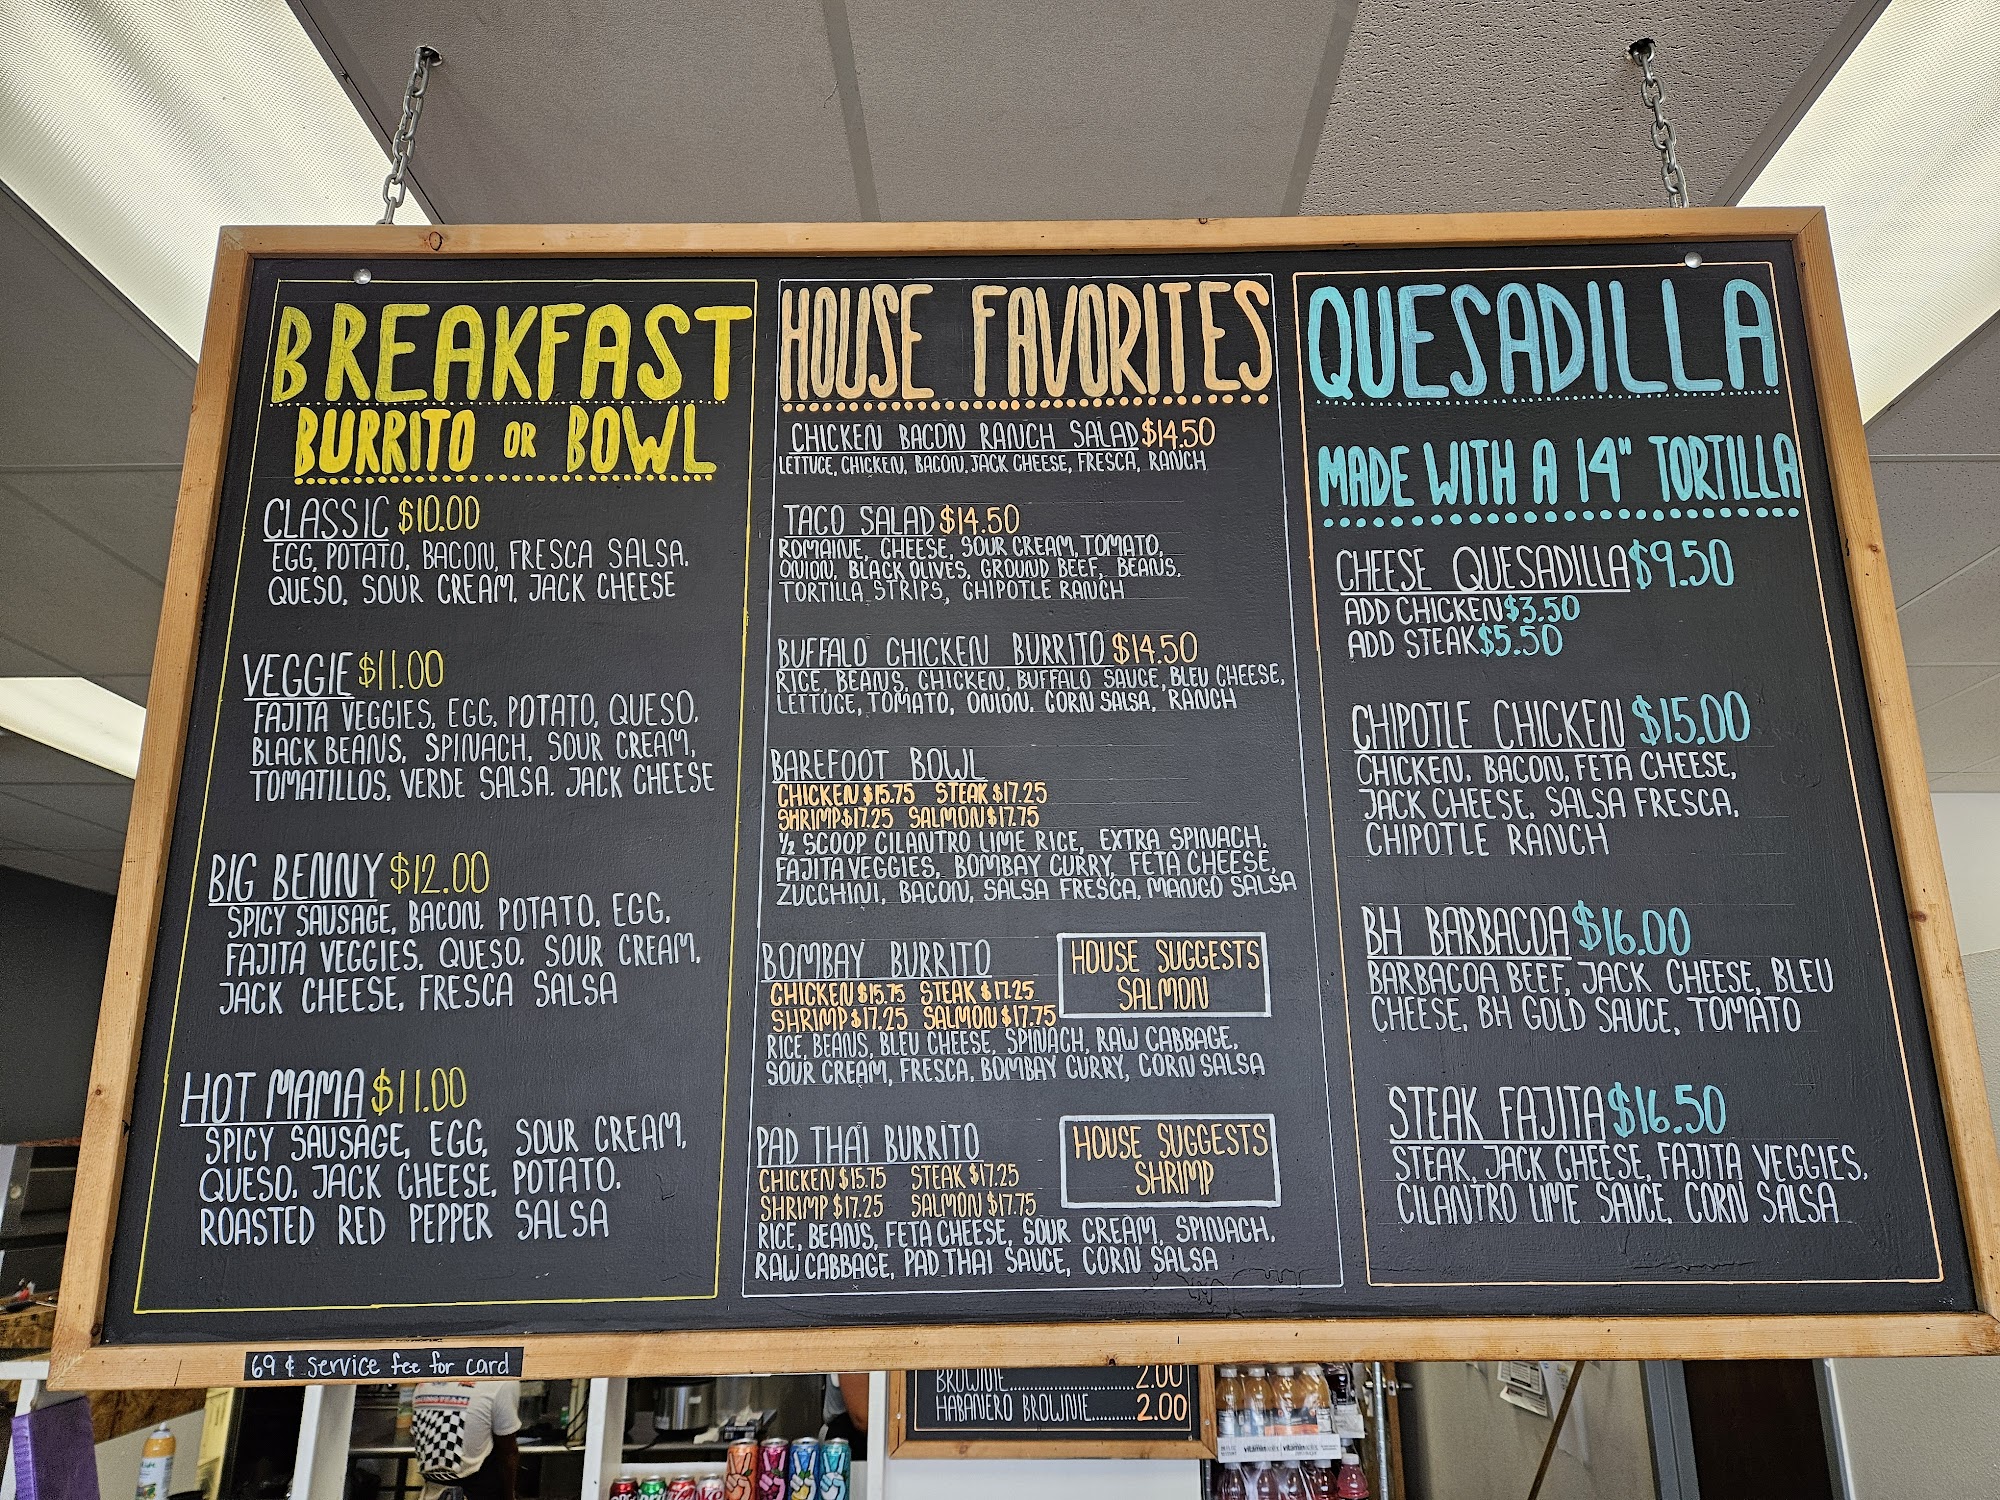 BREAKFAST
BURRITO OR BOWL
CLASSIC $10.00
EGG, POTATO, BACON, FRESCA SALSA,
QUESO, SOUR CREAM, JACK CHEESE
VEGGIE $11.00
FAJITA VEGGIES, EGG, POTATO, QUESO,
BLACK BEANS, SPINACH, SOUR CREAM,
TOMATILLOS, VERDE SALSA, JACK CHEESE
BIG BENNY $12.00
SPICY SAUSAGE, BACON, POTATO, EGG,
FAJITA VEGGIES, QUESO, SOUR CREAM,
JACK CHEESE, FRESCA SALSA
HOT MAMA $11.00
SPICY SAUSAGE, EGG, SOUR CREAM,
QUESO, JACK CHEESE, POTATO,
ROASTED RED PEPPER SALSA
HOUSE FAVORITES
CHICKEN BACON RANCH SALAD $14.50
LETTUCE, CHICKEN, BACON, JACK CHEESE, FRESCA, RANCH
TACO SALAD $14.50
ROMAINE, CHEESE, SOUR CREAM, TOMATO,
ONION, BLACK OLIVES, GROUND BEEF, BEANS,
TORTILLA STRIPS, CHIPOTLE RANCH
BUFFALO CHICKEN BURRITO $14.50
RICE, BEANS, CHICKEN, BUFFALO SAUCE, BLEU CHEESE,
LETTUCE, TOMATO, ONION, CORN SALSA, RANCH
BAREFOOT BOWL
CHICKEN $15.75 STEAK $17.25
SHRIMP $17.25 SALMON $17.75
1/2 SCOOP CILANTRO LIME RICE, EXTRA SPINACH,
FAJITA VEGGIES, BOMBAY CURRY, FETA CHEESE,
ZUCCHINI, BACON, SALSA FRESCA, MANGO SALSA
BOMBAY BURRITO
CHICKEN $15.75 STEAK $17.25
SHRIMP $17.25 SALMON $17.75
HOUSE SUGGESTS
SALMON
RICE, BEANS, BLEU CHEESE, SPINACH, RAW CABBAGE,
SOUR CREAM, FRESCA, BOMBAY CURRY, CORN SALSA
PAD THAI BURRITO
CHICKEN $15.75 STEAK $17.25
SHRIMP $17.25 SALMON $17.75
HOUSE SUGGESTS
SHRIMP
RICE, BEANS, FETA CHEESE, SOUR CREAM, SPINACH,
RAW CABBAGE, PAD THAI SAUCE, CORN SALSA
QUESADILLA
MADE WITH A 14" TORTILLA
CHEESE QUESADILLA $9.50
ADD CHICKEN $3.50
ADD STEAK $5.50
CHIPOTLE CHICKEN $15.00
CHICKEN, BACON, FETA CHEESE,
JACK CHEESE, SALSA FRESCA,
CHIPOTLE RANCH
BH BARBACOA $16.00
BARBACOA BEEF, JACK CHEESE, BLEU
CHEESE, BH GOLD SAUCE, TOMATO
STEAK FAJITA $16.50
STEAK, JACK CHEESE, FAJITA VEGGIES,
CILANTRO LIME SAUCE, CORN SALSA
69 ¢ service fee for card
BROWNIE..........................2.00
HABANERO BROWNIE...........2.00